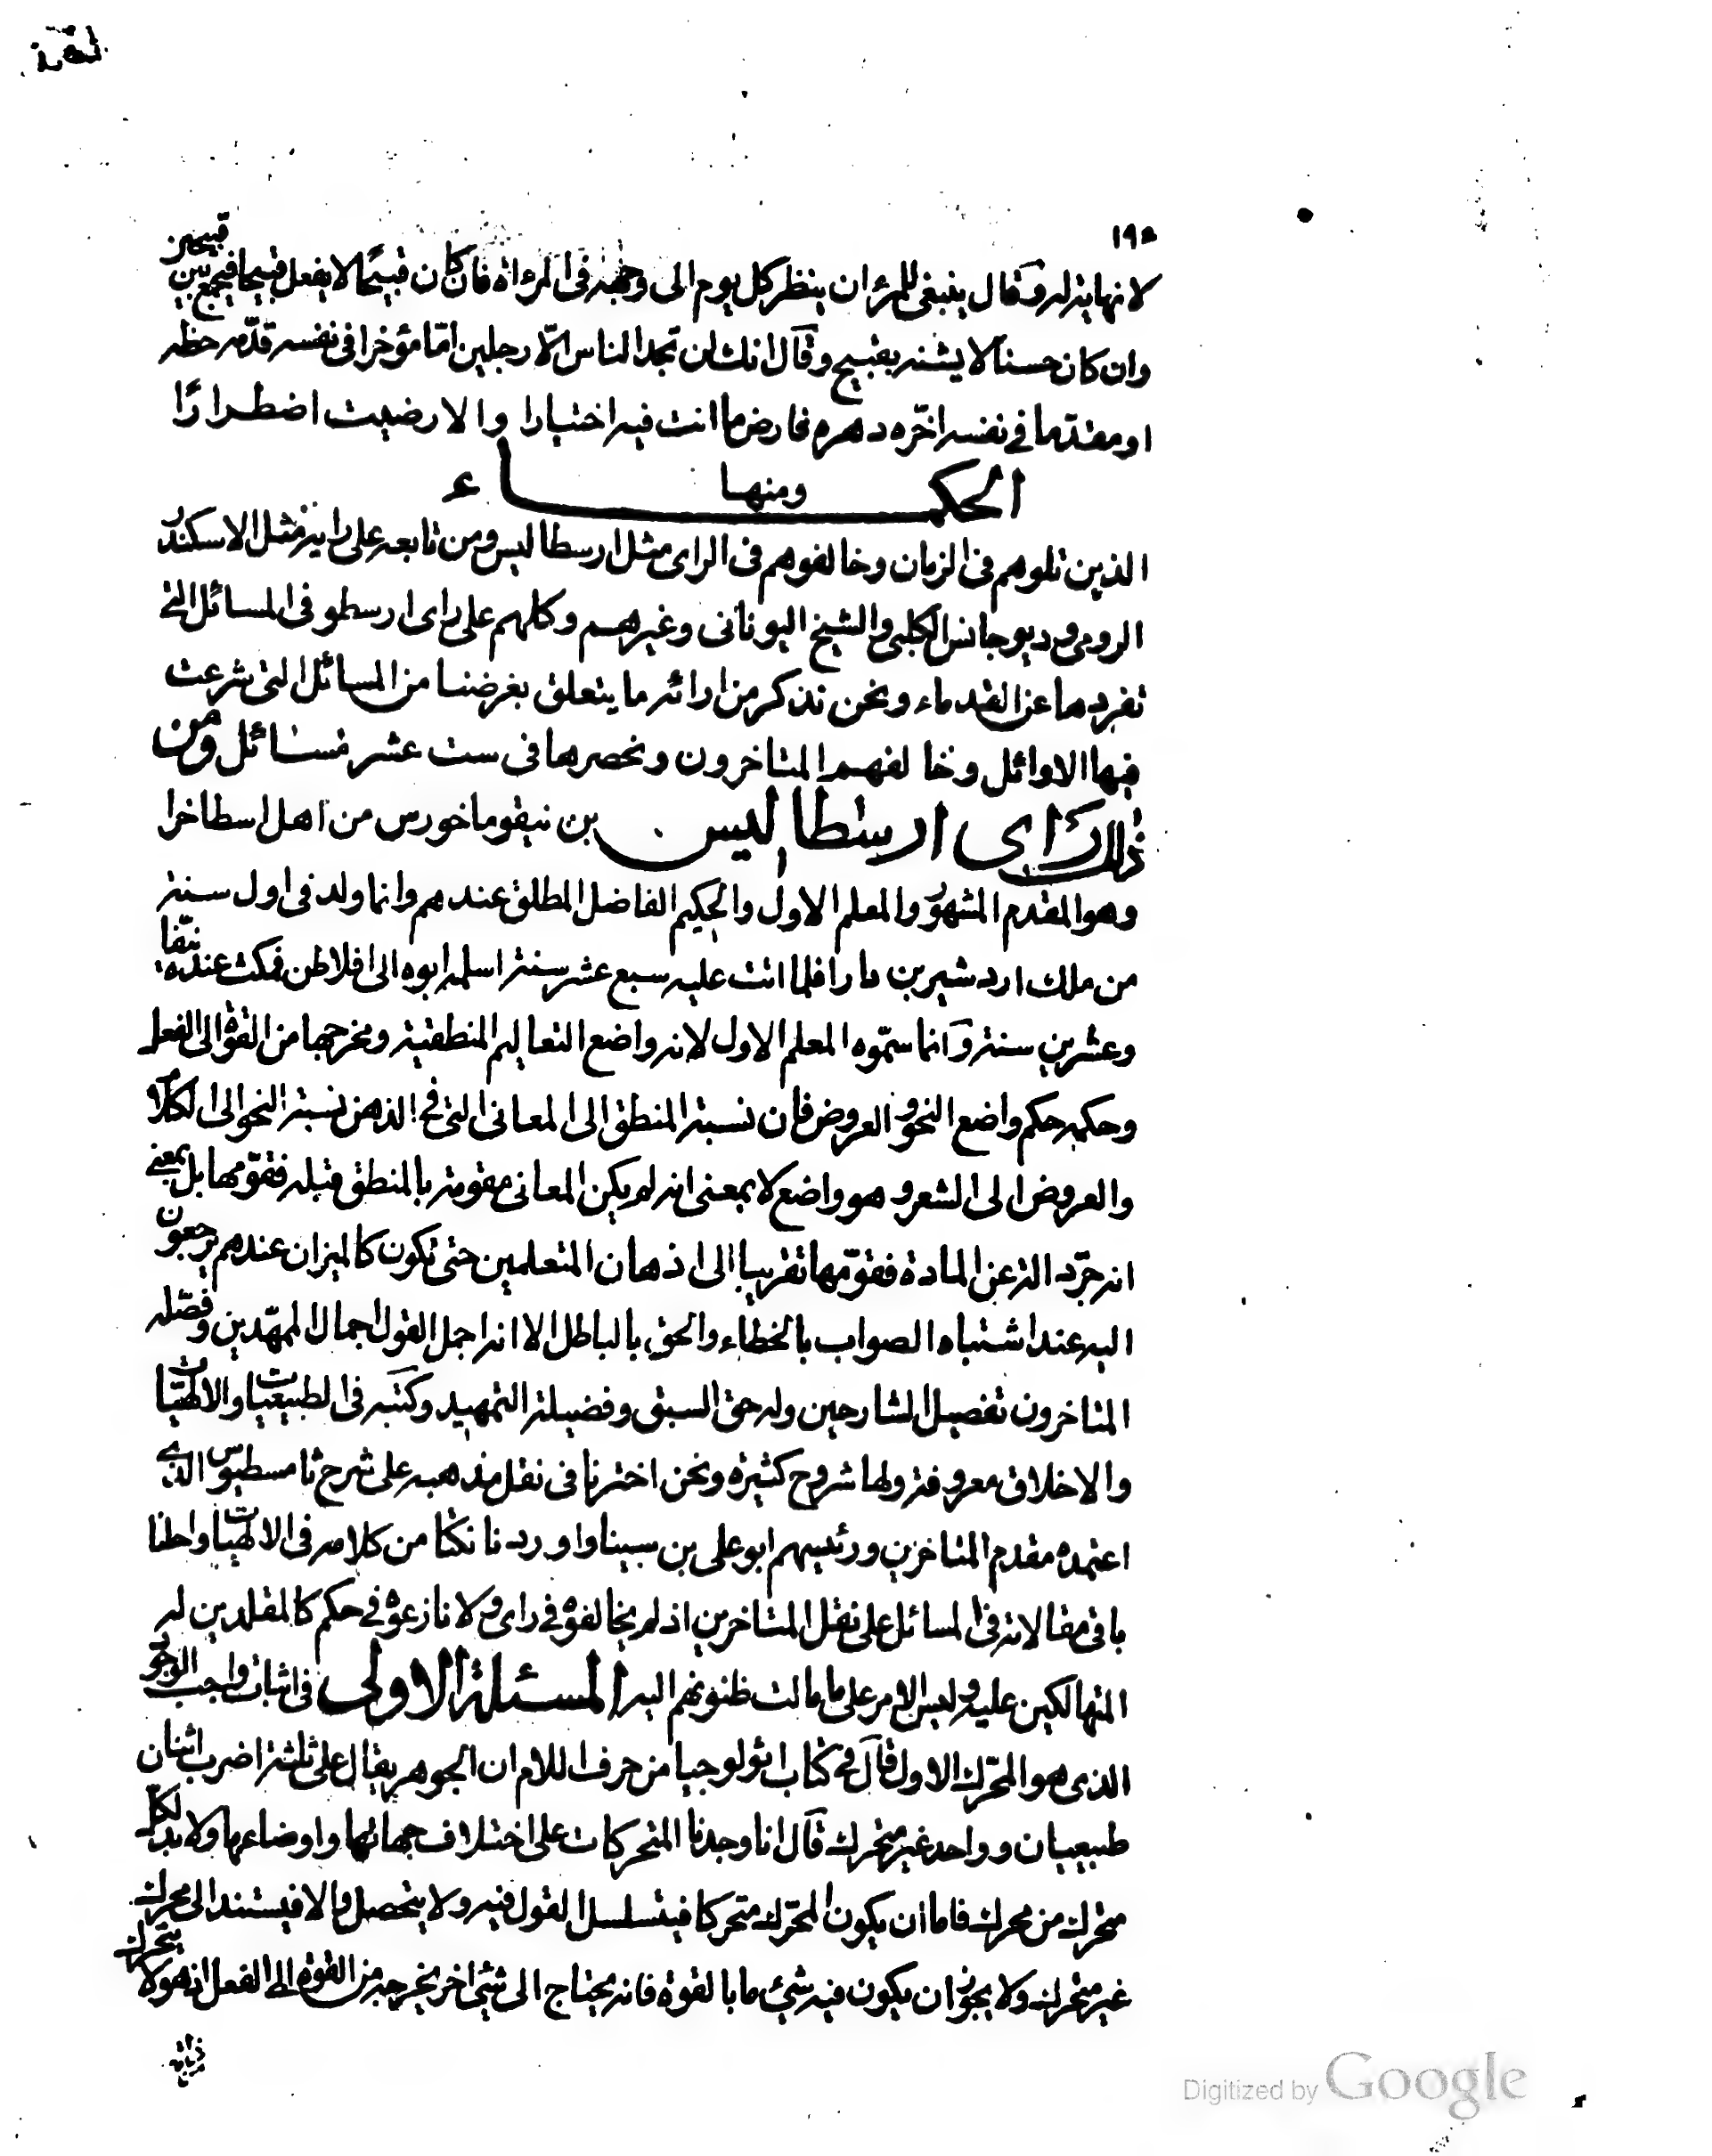 ١٩٥
لانهاية له وقال ينبغى للمرء ان ينظر كل يوم الى وجهه فى المرءاة فان كان قبيحًا لا يفعل قبيحا فيجمع بين قبيحين
وان كان حسنا لا يشنه بقبيح وقال انك لن تجد الناس الّا رجلين امّا مؤخرا فى نفسه قدّمه حظه
او مقدما فى نفسه اخّره دهره فارض ما انت فيه اختيارا والا رضيت اضطرارًا
الحكماء ومنها
الذين تلوهم فى الزمان وخالفوهم فى الراى مثل ارسطاليس ومن تابعه على رايه مثل الاسكندر
الرومى وديوجانس الكلبى والشيخ اليونانى وغيرهم وكلهم على راى ارسطو فى المسائل التى
تفرد بها عن القدماء ونحن نذكر من ارائه ما يتعلق بغرضنا من المسائل التى شرعت
فيها الاوائل وخالفهم المتاخرون ونحصرها فى ست عشر مسائل ومن
ذلك راى ارسطاليس بن نيقوماخورس من اهل اسطاخرا
وهو المقدم المشهور والمعلم الاول والحكيم الفاضل المطلق عندهم وانما ولد فى اول سنة
من ملك اردشير بن دارا فلما اتت عليه سبع عشر سنة اسلمه ابوه الى افلاطن فمكث عنده نيّفا
وعشرين سنة وانما سمّوه المعلم الاول لانه واضع التعاليم المنطقية ومخرجها من القوة الى الفعل
وحكمه حكم واضع النحو والعروض فان نسبة المنطق الى المعانى التى فى الذهن نسبة النحو الى الكلام
والعروض الى الشعر وهو واضع لا بمعنى انه لم يكن المعانى مقومة بالمنطق قبله فقوّمها بل بمعنى
انه جرّد الة عن المادة فقوّمها تقريبا الى اذهان المتعلمين حتى تكون كالميزان عندهم يرجعون
اليه عند اشتباه الصواب بالخطاء والحق بالباطل الا انه اجمل القول اجمال الممهّدين وفصّله
المتاخرون تفصيل الشارحين وله حق السبق وفضيلة التمهيد وكتبه فى الطبيعيات والالهيّات
والاخلاق معروفة ولها شروح كثيرة ونحن اخترنا فى نقل مذهبه على شرح ثامسطيوس الذى
اعتمده مقدم المتاخرين ورئيسهم ابو على بن سينا واوردنا نكتا من كلامه فى الالهيات واحلنا
باقى مقالاته فى المسائل على نقل المتاخرين اذ لم يخالفوه فى راى ولا نازعوه فى حكم كالمقلدين له
المتهالكين عليه وليس الامر على ما مالت ظنونهم اليه المسئلة الاولى فى اثبات واجب الوجود
الذى هو المحرّك الاول قال فى كتاب اثولوجيا من حرف اللام ان الجوهر يقال على ثلثة اضرب اثنان
طبيعيان وواحد غير متحرك قال انا وجدنا المتحركات على اختلاف جهاتها واوضاعها ولا بد لكل
متحرك من محرك فاما ان يكون المحرّك متحركا فيتسلسل القول فيه ولا يتحصل والا فيستند الى محرك
غير متحرك ولا يجوز ان يكون فيه شئ ما بالقوة فانه يحتاج الى شئ اخر يخرجه من القوة الى الفعل اذ هو لا يتحرك
Digitized by Google